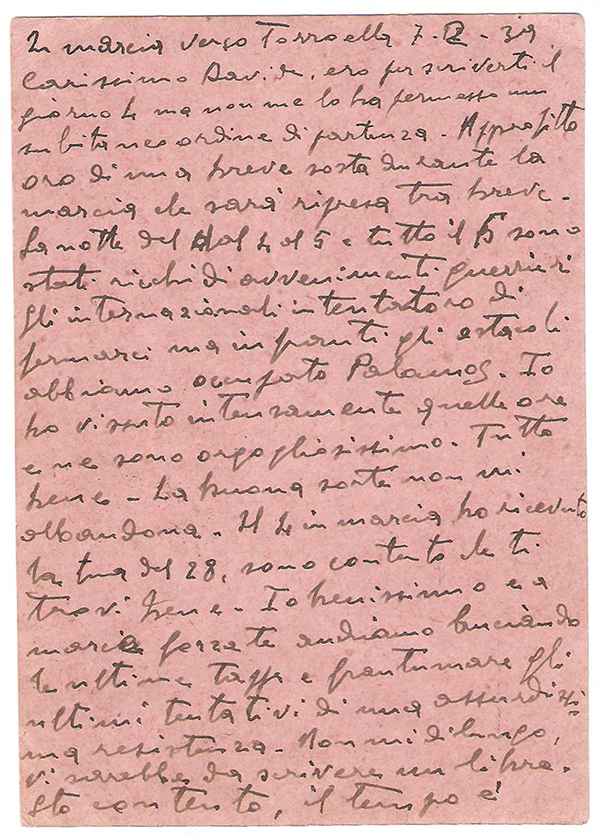 In marcia verso Torroella 7-II-39
Carissimo Davide, ero per scriverti il
giorno 4 ma non me lo ha permesso un
subitaneo ordine di partenza. Approfitto
oro di una breve sosta durante la
marcia che sarà ripresa tra breve.
La notte del dal 4 al 5 e tutto il 5 sono
stati ricchi di avvenimenti guerrieri
gli internazionali intentatoro di
fermarci ma infranti gli ostacoli
abbiamo occupato Palamos. Io
ho vissuto intensamente quelle ore
e ne sono orgogliosissimo. Tutto
bene - La buona sorte non mi
abbandona. Il 4 in marcia ho ricevuto
la tua del 28, sono contento che ti
trovi bene. Io benissimo e a
marcie forzate andiamo bruciando
le ultime tappe e frantumare gli
ultimi tentativi di una assurdissi-
ma resistenza. Non mi dilungo,
vi sarebbe da scrivere un libro.
Sto contento, il tempo é